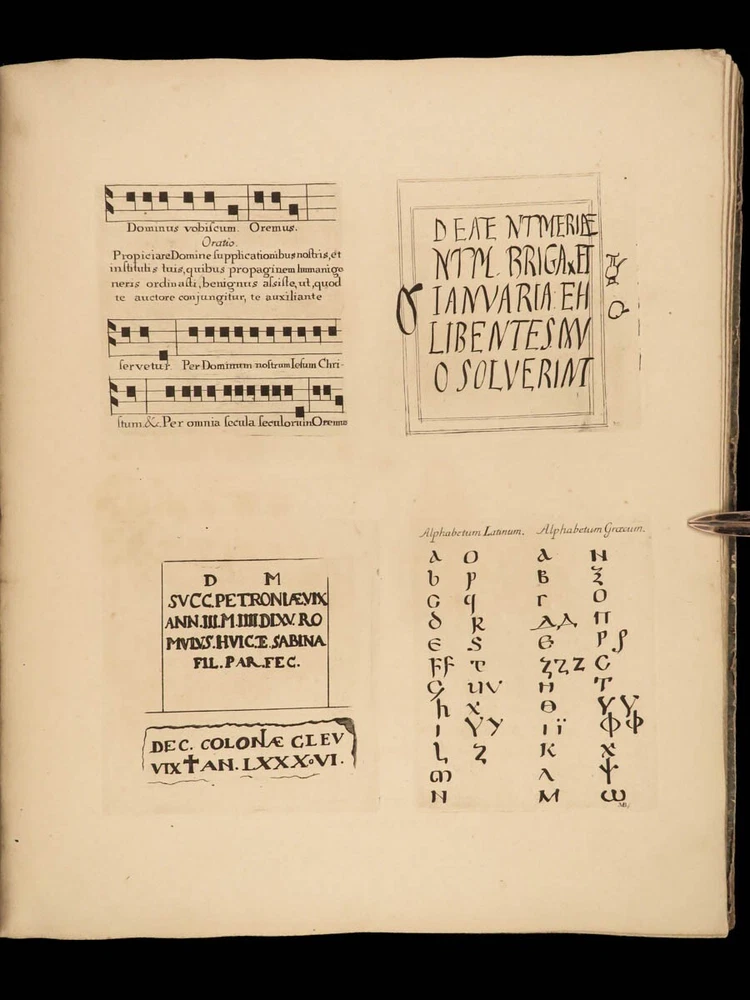 Dominus vobiſcum. Oremus.
Oratio.
Propiciare Domine ſupplicationibus noſtris, et
inſtitutis tuis, quibus propaginem humani ge
neris ordinaſti, benignus aſsiſte, ut, quod
te auctore conjungitur, te auxiliante
ſervetur. Per Dominum noſtrum Ieſum Chri-
ſtum. &c. Per omnia ſecula ſeculorum Oremus
DEAE NTMERIAE
NTM. BRIGA ET
IANVARIA EH
LIBENTES
O SOLVERINT
D M
SVCC.PETRONIÆ.VIX
ANN.III.M.IIII.D.IX.V. RO
MVLVS.
SABINA
FIL. PAR.FEC.
DEC. COLONIÆ GLEV
VIX✝AN. LXXX.VI.
Alphabetum Latinum. Alphabetum Græcum.
a o α Ν
b p Β Ξ
G q Γ Ο
δ R Δ Δ Π
Є S Є Ρ ρ
FF τ Ζ Ζ Ζ C
G u v Η Τ
h x Θ Υ Υ
I Y y Ι ϊ Φ Φ
L z Κ Χ
m Λ Ψ
N Μ ω